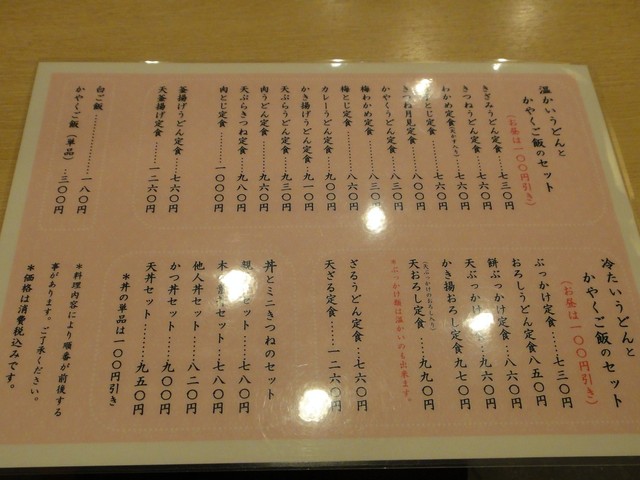 温かいうどんと
かやくご飯のセット
(お昼は一〇〇円引き)
きざみうどん定食……七三〇円
きつねうどん定食……七六〇円
わかめ定食……七六〇円
とじ定食……七六〇円
きつね月見定食……八〇〇円
かやくうどん定食……八三〇円
梅わかめ定食……八三〇円
梅とじ定食……八六〇円
カレーうどん定食……八六〇円
かき揚げうどん定食…九一〇円
天ぷらうどん定食……九三〇円
肉うどん定食……九六〇円
天ぷらきつね定食…九八〇円
肉とじ定食……一〇〇〇円
釜揚げうどん定食…七六〇円
天釜揚げ定食……一二六〇円
白ご飯……一八〇円
かやくご飯(単品)…三〇〇円
冷たいうどんと
かやくご飯のセット
(お昼は一〇〇円引き)
ぶっかけ定食……七三〇円
おろしうどん定食…八五〇円
餅ぶっかけ定食……八六〇円
天ぶっかけ定食……九六〇円
かき揚おろし定食…九七〇円
天おろし定食……九九〇円
(天ぶっかけのおろし入り)
*ぶっかけ類は温かいのも出来ます。
ざるうどん定食……七六〇円
天ざる定食……一二六〇円
丼とミニきつねのセット
セット……七八〇円
木の葉丼セット……七八〇円
他人丼セット……八二〇円
かつ丼セット……九〇〇円
天丼セット……九五〇円
*丼の単品は一〇〇円引き
*料理内容により順番が前後する
事があります。ご了承ください。
*価格は消費税込みです。